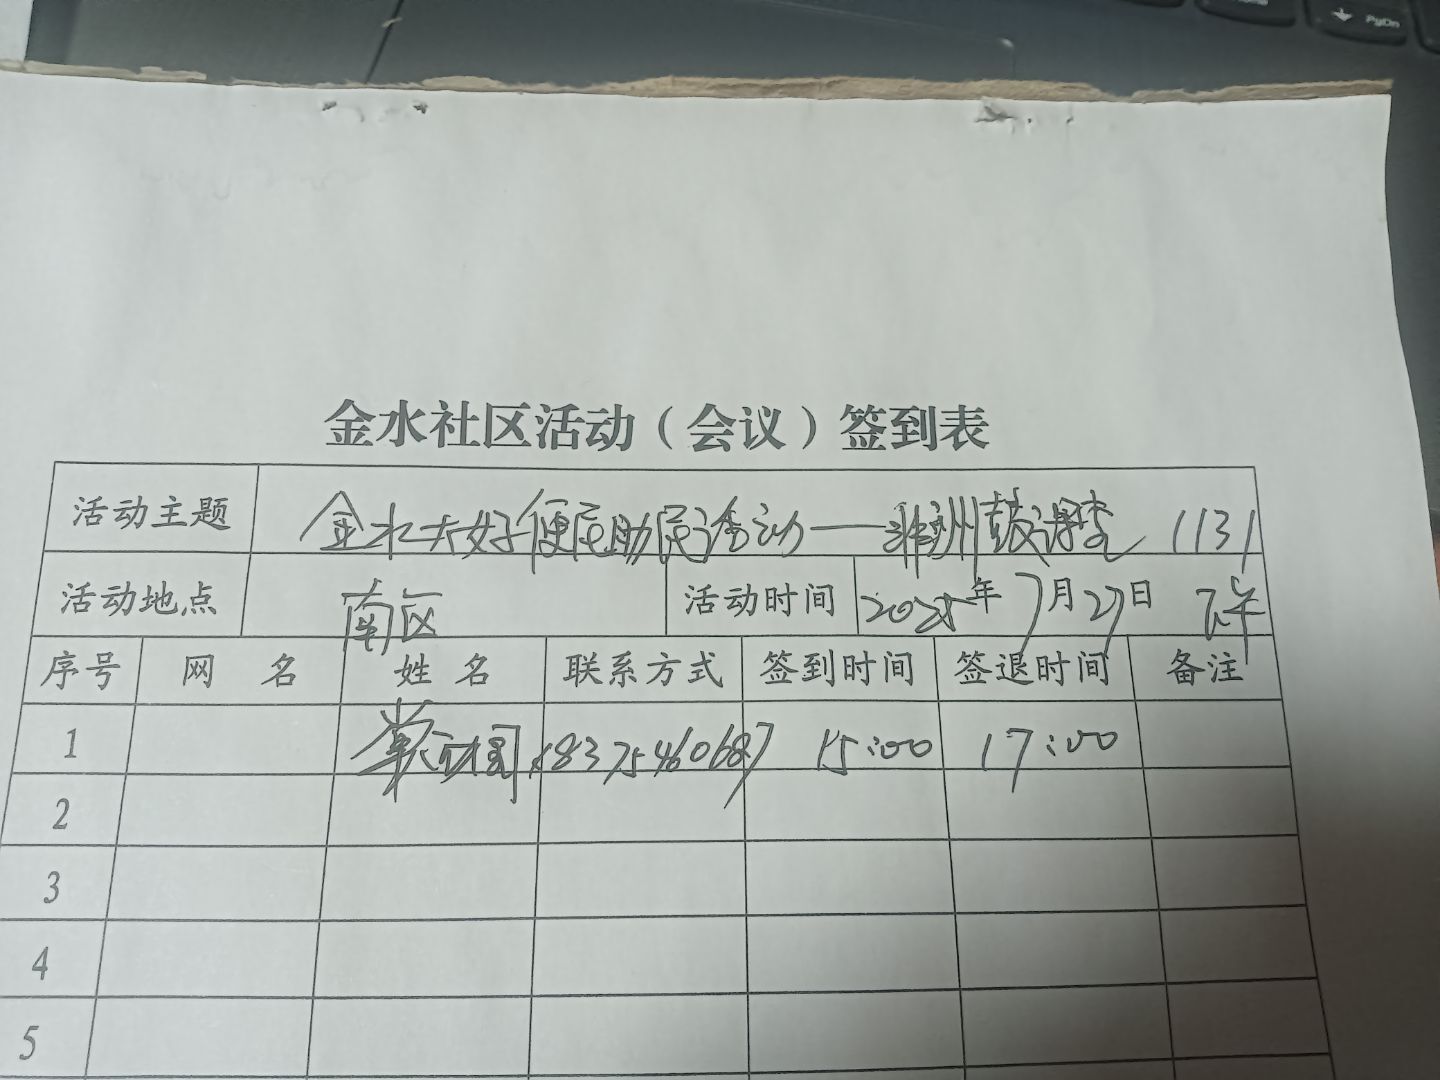 PgDn
金水社区活动（会议）签到表
活动主题 金水大好便民助民活动——非洲鼓课堂 1131
活动地点 南区 活动时间 2025年7月27日 下午
序号 网 名 姓 名 联系方式 签到时间 签退时间 备注
1 18375460687 15:00 17:00
2
3
4
5